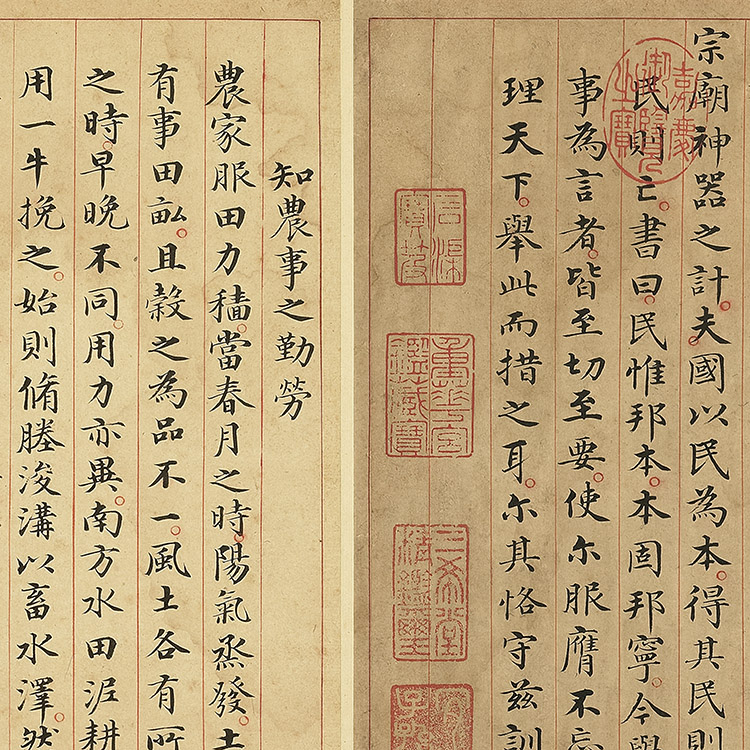 宗廟神器之計夫國以民為本得其民則
民則亡書曰民惟邦本本固邦寧今與
事為言者皆至切至要使尒服膺不忘
理天下舉此而措之耳尒其恪守茲訓
嘉慶御覽之寶
石渠寶笈
重華宮鑑藏寶
三希堂精鑑璽
知農事之勤勞
農家服田力穡當春月之時陽氣烝發土
有事田畝且穀之為品不一風土各有所
之時早晚不同用力亦異南方水田泥耕
用一牛挽之始則脩塍浚溝以畜水澤然